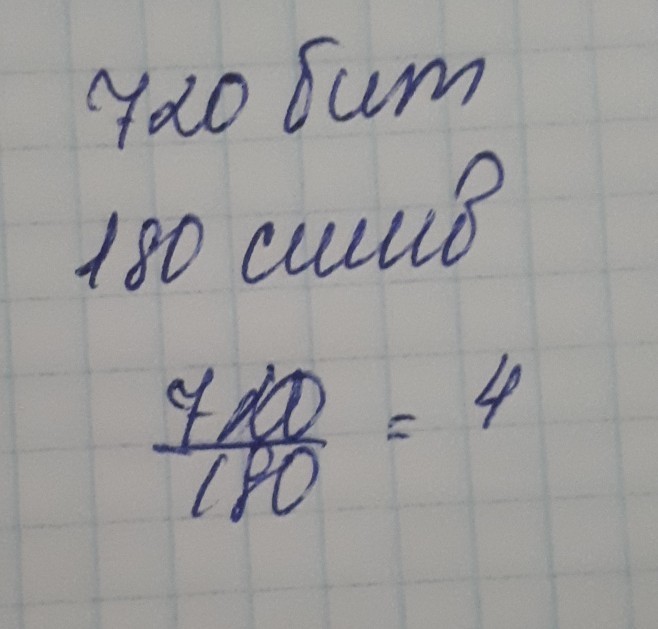 720 бит
180 симв
720/180 = 4